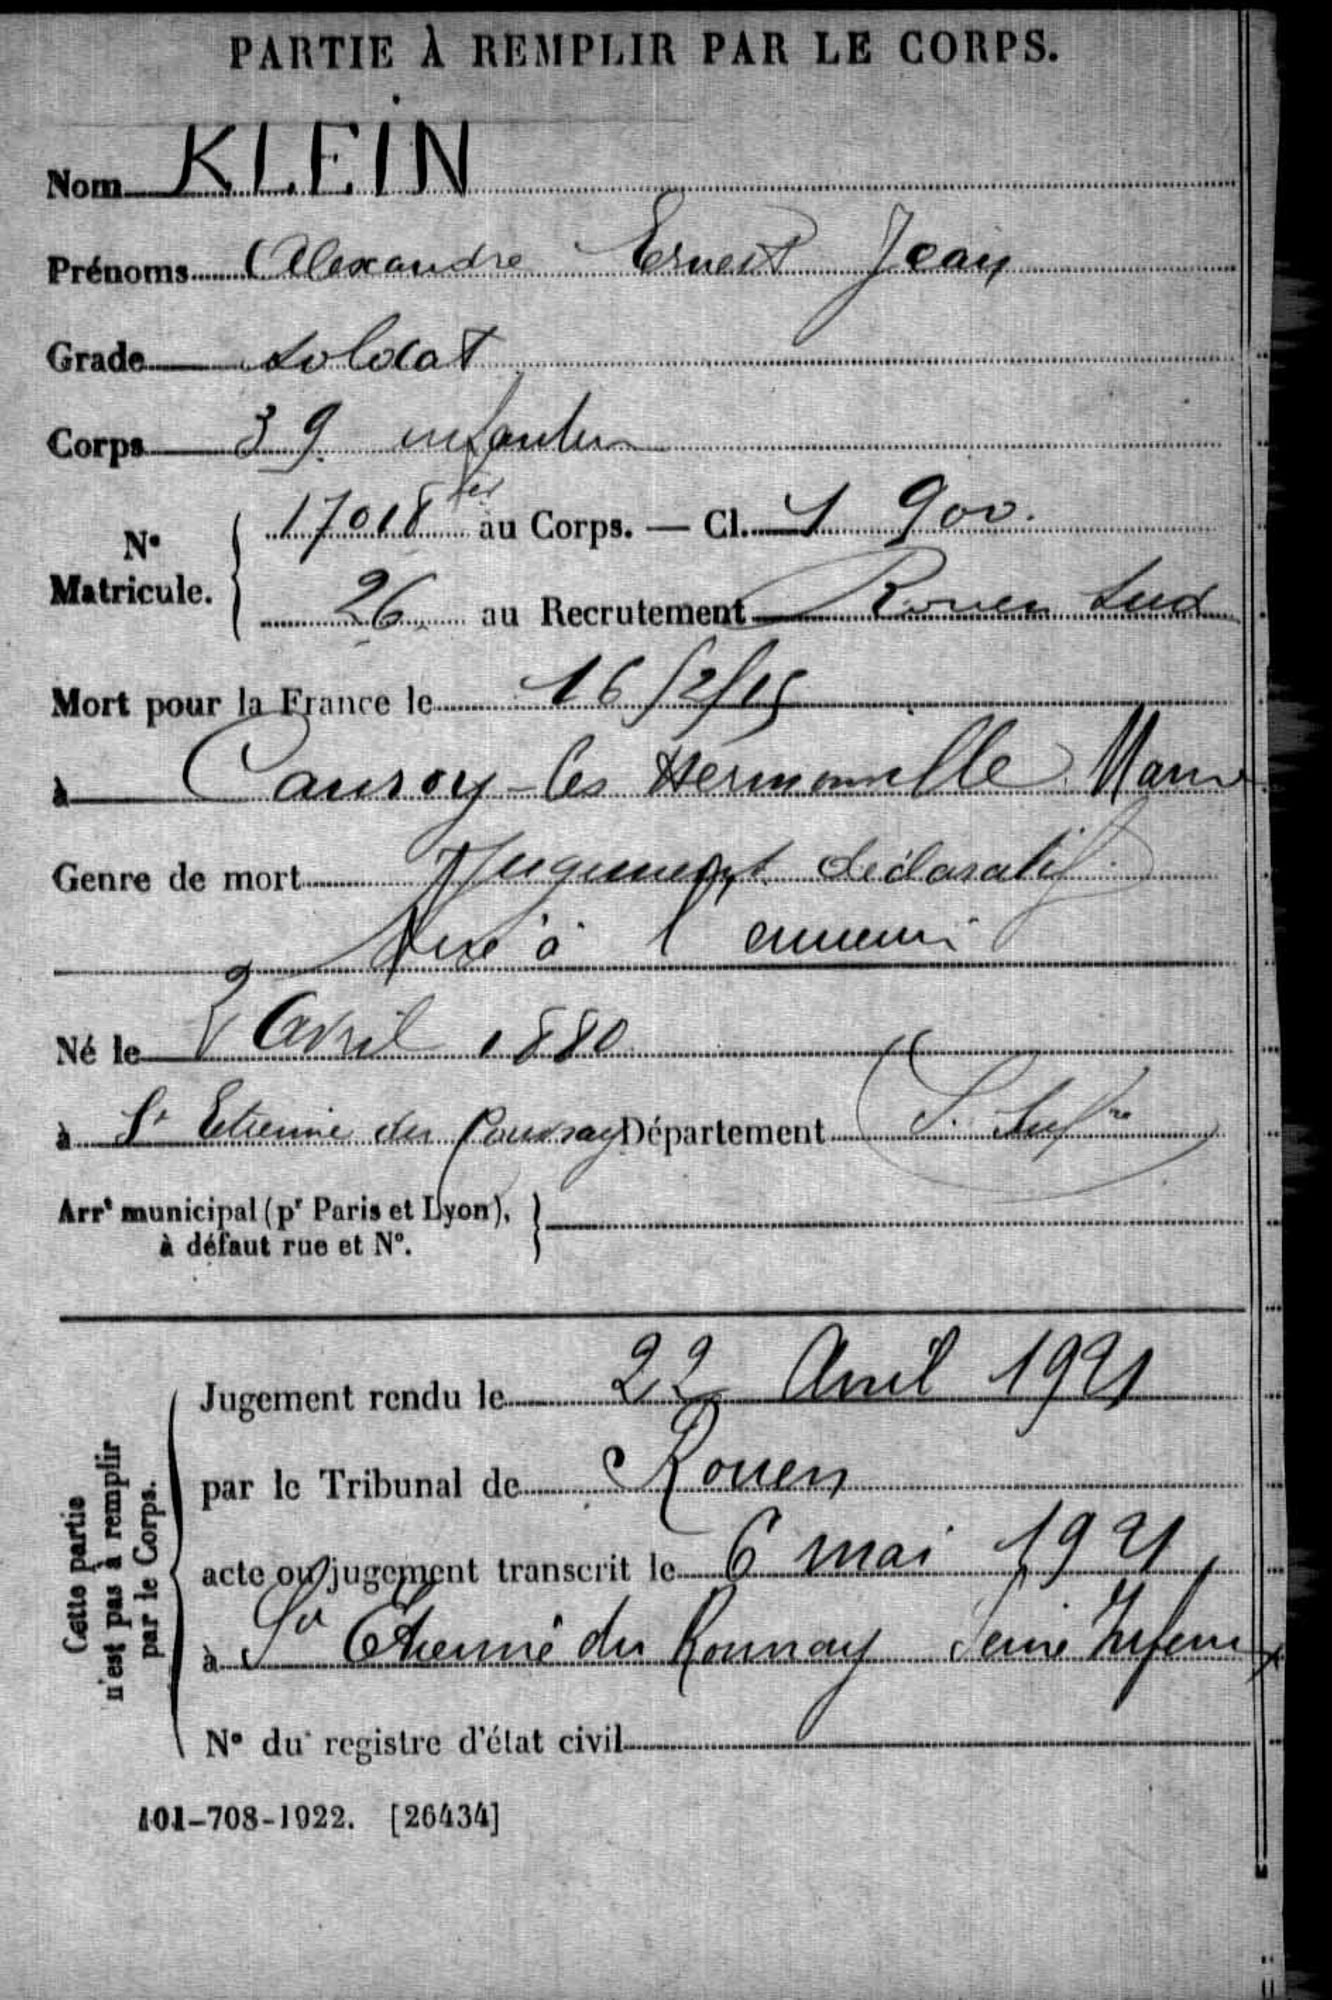 PARTIE À REMPLIR PAR LE CORPS.
Nom KLEIN
Prénoms Alexandre Ernest Jean
Grade soldat
Corps 39 infanterie
N° Matricule. 17018 au Corps. — Cl. 1900.
26 au Recrutement Rouen Sud
Mort pour la France le 16/2/15
à Cauroy-les Hermonville Marne
Genre de mort Jugement déclaratif.
Tué à l'ennemi
Né le 2 Avril 1880
à St Etienne du Rouvray Département S. Infre
Arrt municipal (pr Paris et Lyon),
à défaut rue et N°.
Cette partie
n'est pas à remplir
par le Corps.
Jugement rendu le 22 Avril 1921
par le Tribunal de Rouen
acte ou jugement transcrit le 6 mai 1921
à St Etienne du Rouvray Seine Infre
N° du registre d'état civil
101-708-1922. [26434]